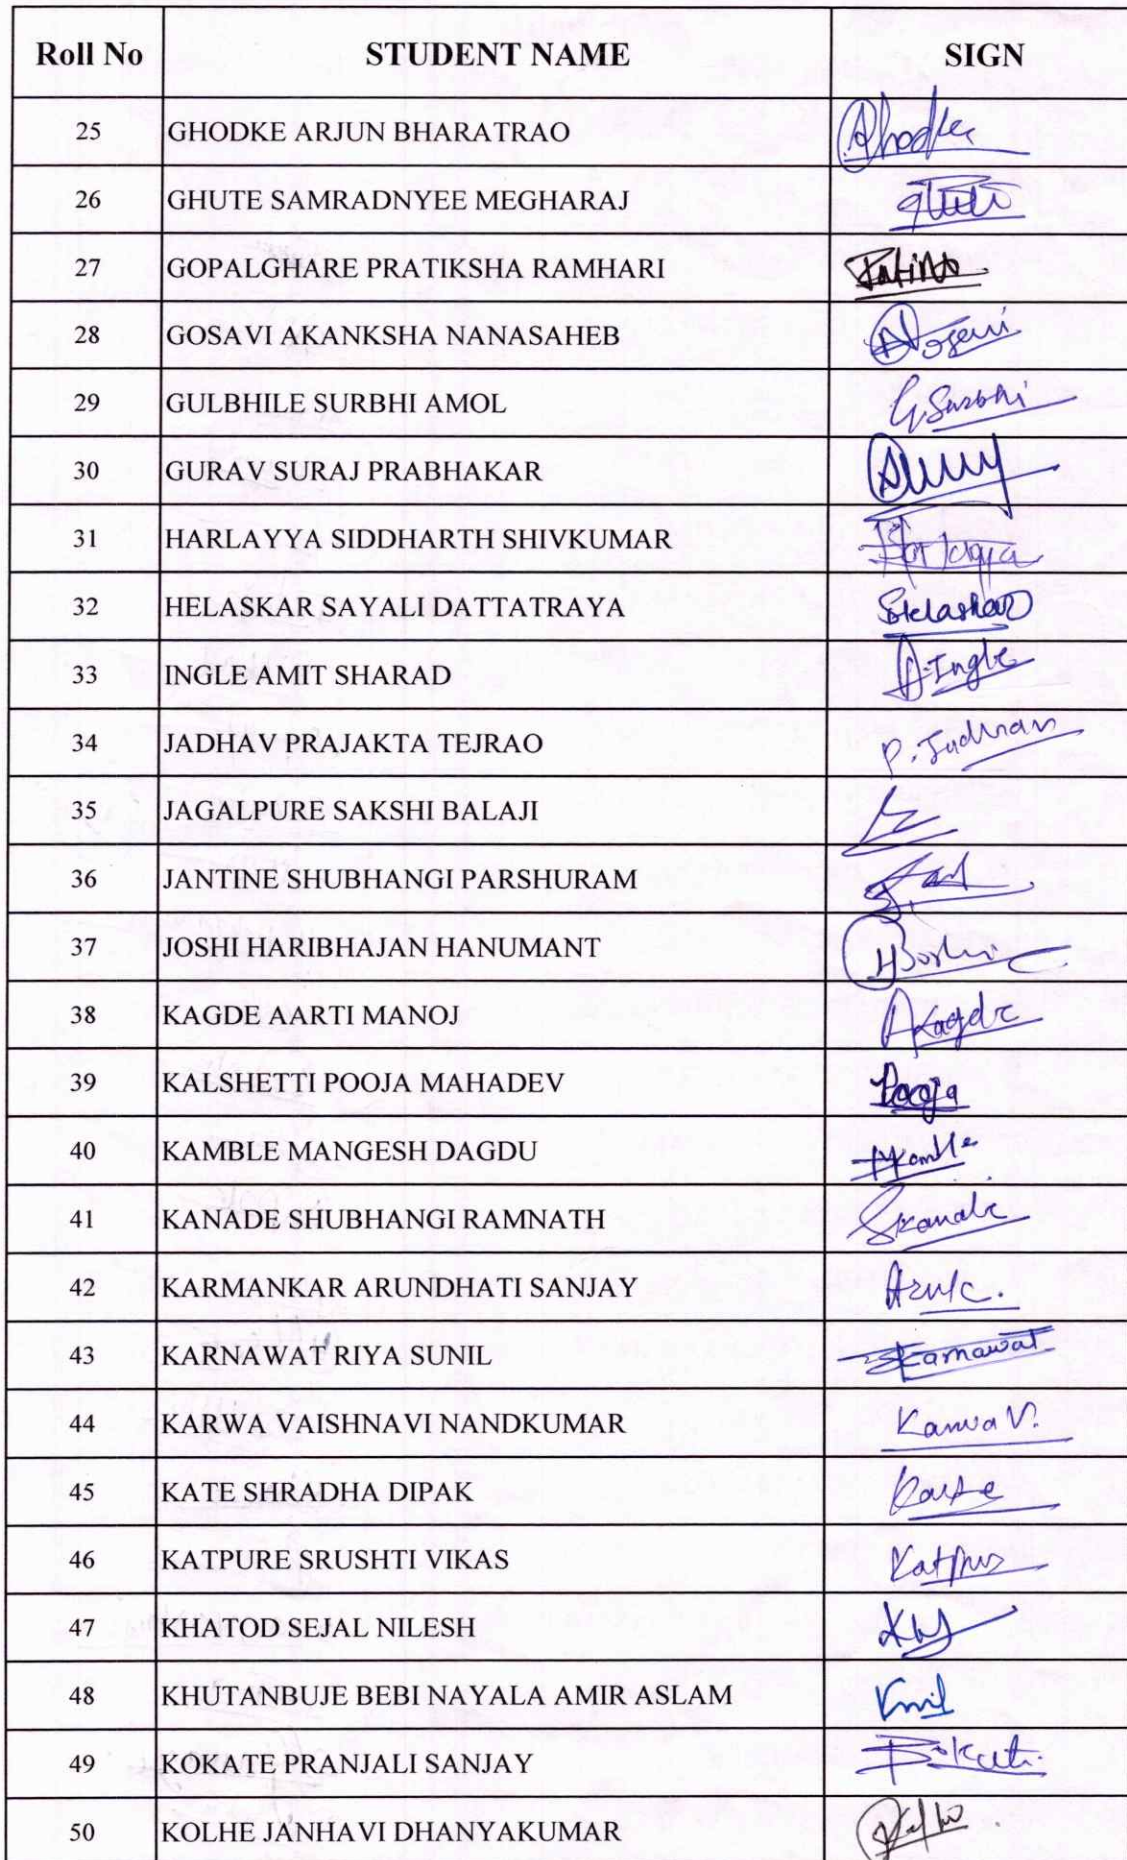 Roll No STUDENT NAME SIGN
25 GHODKE ARJUN BHARATRAO Ghodke
26 GHUTE SAMRADNYEE MEGHARAJ
27 GOPALGHARE PRATIKSHA RAMHARI
28 GOSAVI AKANKSHA NANASAHEB
29 GULBHILE SURBHI AMOL G Surbhi
30 GURAV SURAJ PRABHAKAR
31 HARLAYYA SIDDHARTH SHIVKUMAR
32 HELASKAR SAYALI DATTATRAYA SHelaskar
33 INGLE AMIT SHARAD A.Ingle
34 JADHAV PRAJAKTA TEJRAO P. Jadhav
35 JAGALPURE SAKSHI BALAJI
36 JANTINE SHUBHANGI PARSHURAM
37 JOSHI HARIBHAJAN HANUMANT HJoshi
38 KAGDE AARTI MANOJ AKagde
39 KALSHETTI POOJA MAHADEV Pooja
40 KAMBLE MANGESH DAGDU
41 KANADE SHUBHANGI RAMNATH SKanade
42 KARMANKAR ARUNDHATI SANJAY
43 KARNAWAT RIYA SUNIL Karnawat
44 KARWA VAISHNAVI NANDKUMAR Karwa V.
45 KATE SHRADHA DIPAK
46 KATPURE SRUSHTI VIKAS
47 KHATOD SEJAL NILESH
48 KHUTANBUJE BEBI NAYALA AMIR ASLAM
49 KOKATE PRANJALI SANJAY
50 KOLHE JANHAVI DHANYAKUMAR